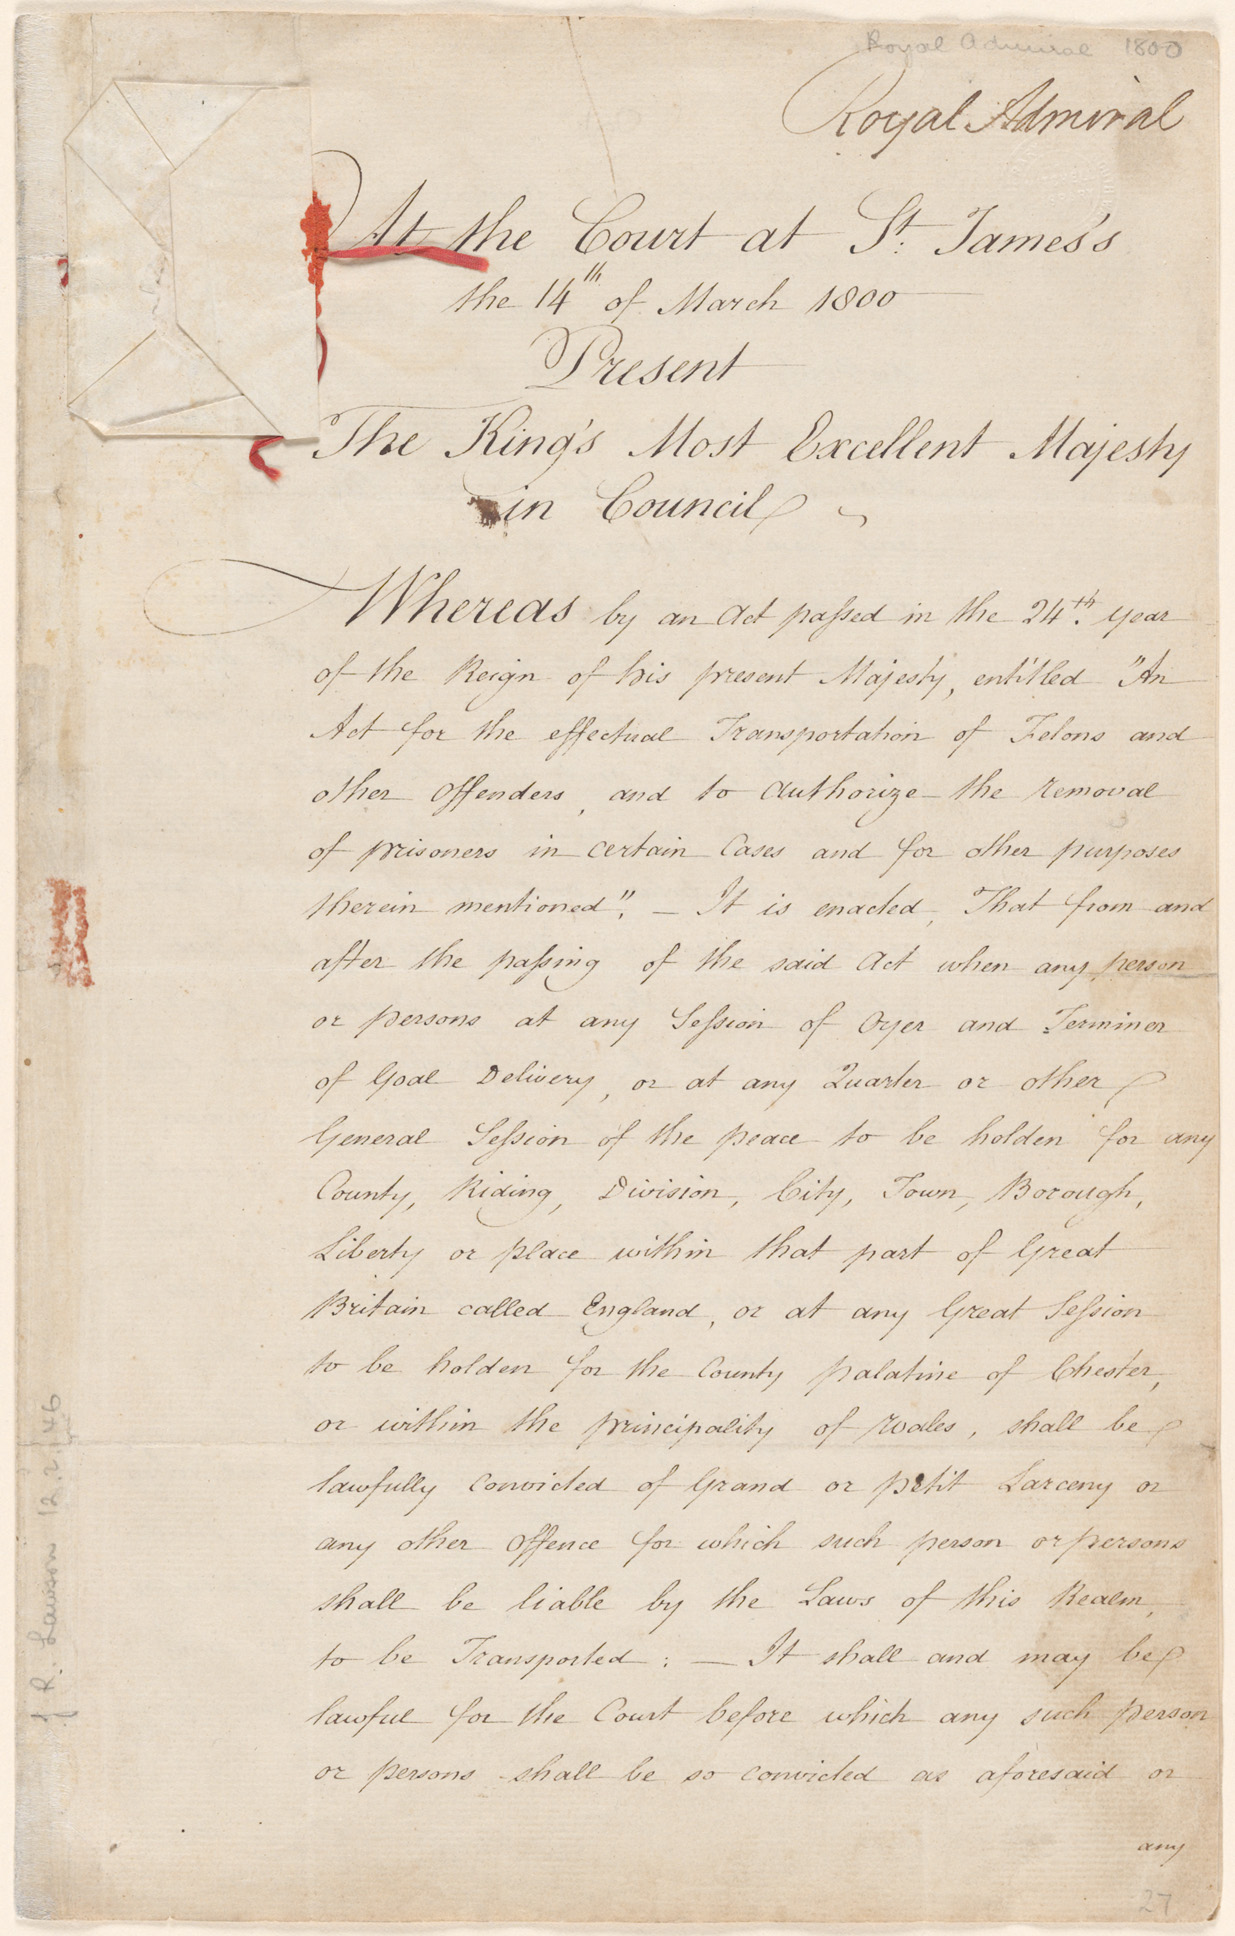 Royal Admiral 1800
Royal Admiral
At the Court at St. James's
the 14th of March 1800
Present
The King's Most Excellent Majesty
in Council
Whereas by an Act paſsed in the 24th. year
of the Reign of his present Majesty, entitled "An
Act for the effectual Transportation of Felons and
other Offenders, and to Authorize the removal
of prisoners in certain Cases and for other purposes
therein mentioned". — It is enacted, That from and
after the paſsing of the said Act when any person
or persons at any Seſsion of Oyer and Terminer
of Goal Delivery, or at any Quarter or other
General Seſsion of the peace to be holden for any
County, Riding, Division, City, Town, Borough,
Liberty or place within that part of Great
Britain called England, or at any Great Seſsion
to be holden for the County palatine of Chester,
or within the principality of Wales, shall be
lawfully convicted of Grand or petit Larceny or
any other Offence for which such person or persons
shall be liable by the Laws of this Realm,
to be Transported: — It shall and may be
lawful for the Court before which any such person
or persons shall be so convicted as aforesaid or
any
27
J. R. Lawson 12.2.46